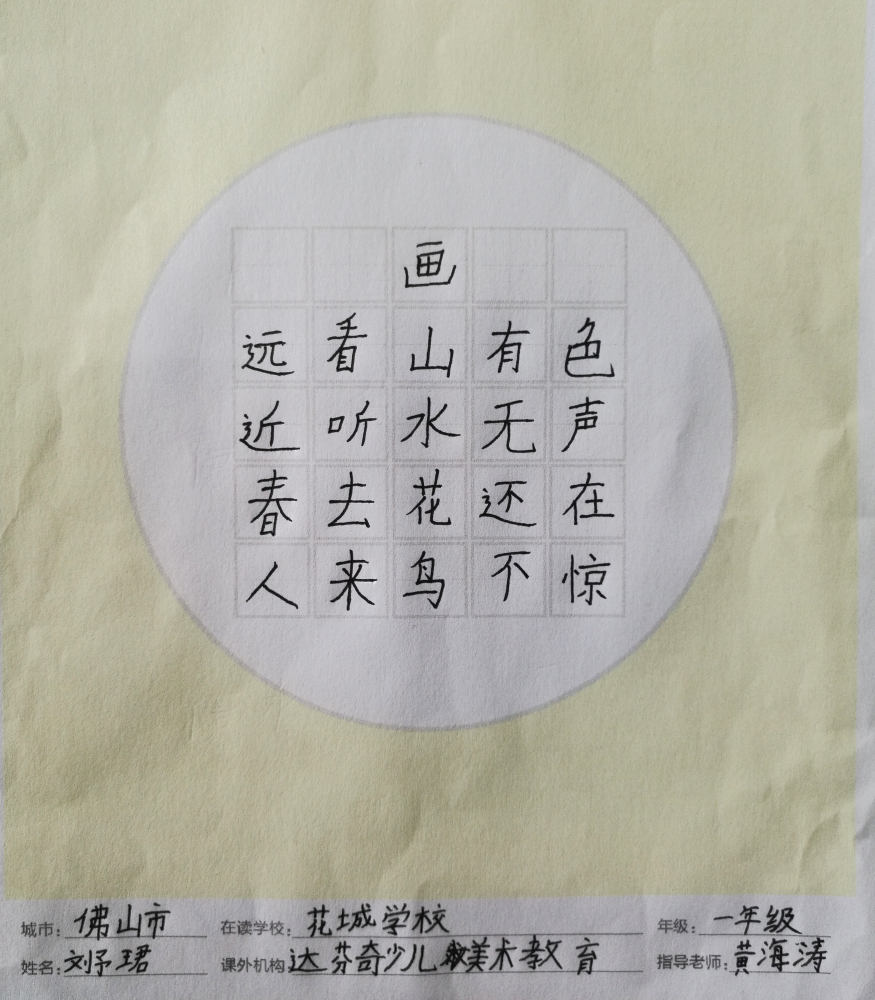 画
远看山有色
近听水无声
春去花还在
人来鸟不惊
城市: 佛山市 在读学校: 花城学校 年级: 一年级
姓名: 刘予珺 课外机构: 达芬奇少儿美术教育 指导老师: 黄海涛